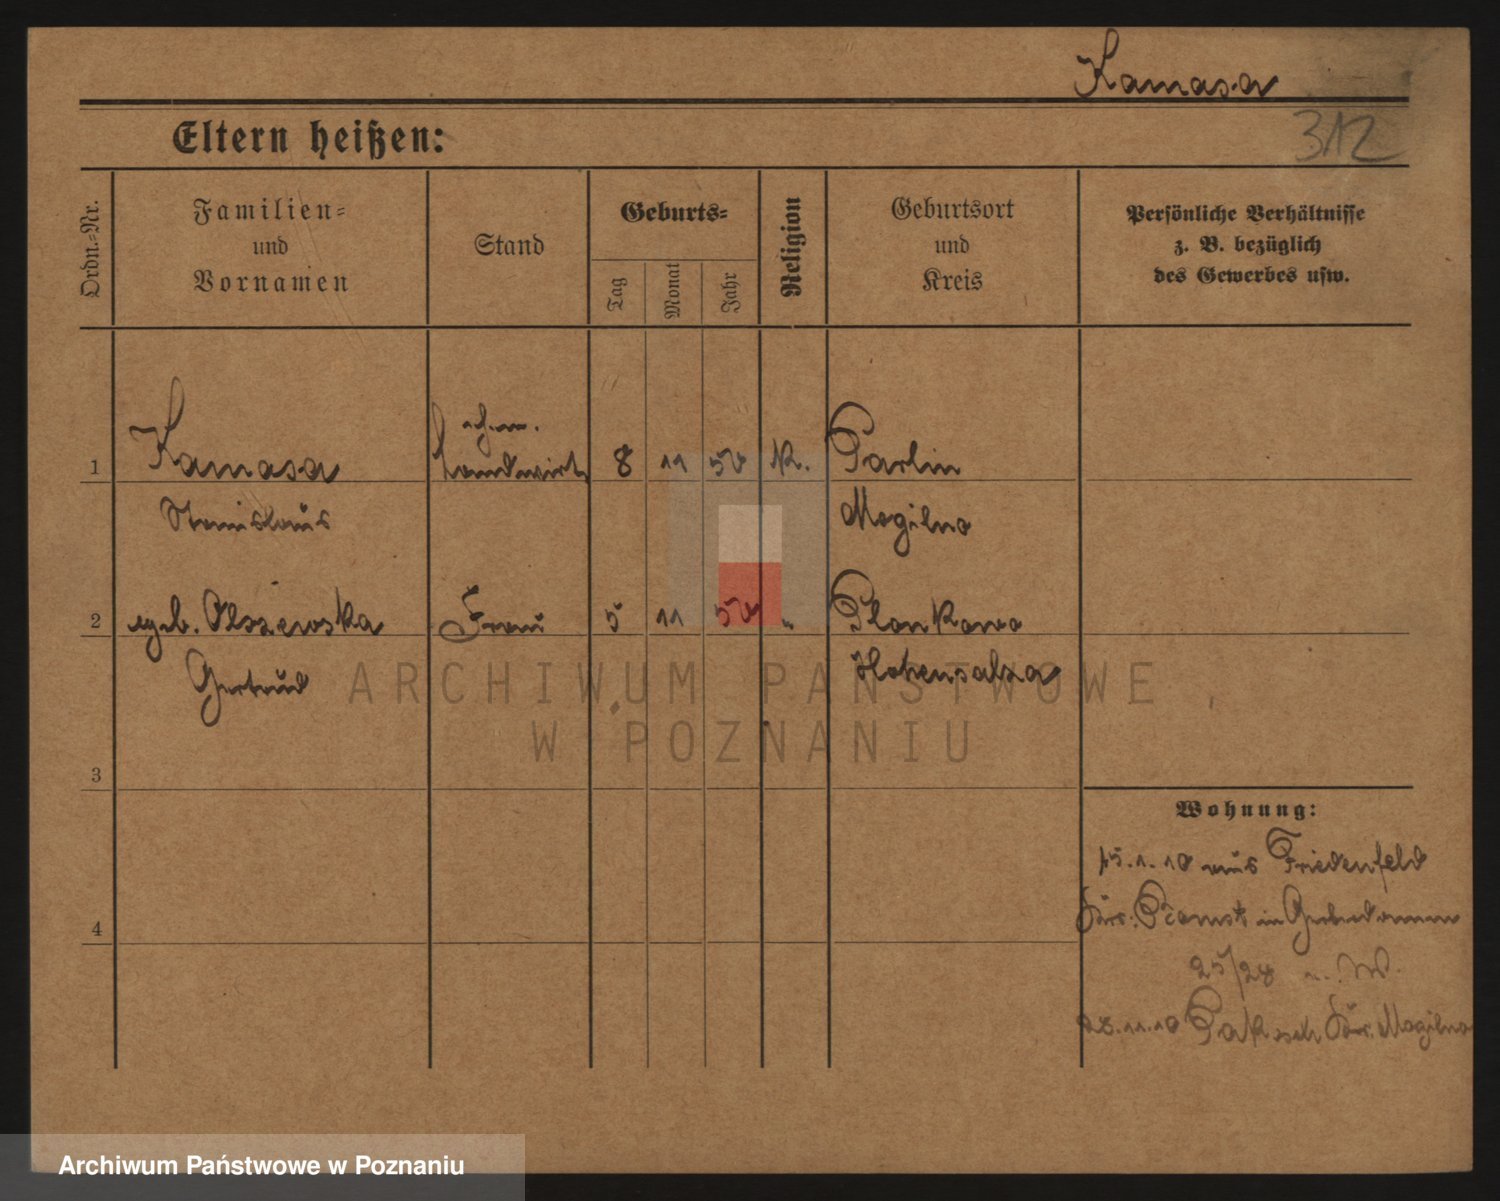 Kamasa
312
Eltern heißen:
Ordn.-Nr.
Familien-
und
Vornamen
Stand
Geburts-
Tag
Monat
Jahr
Religion
Geburtsort
und
Kreis
Persönliche Verhältnisse
z. B. bezüglich
des Gewerbes usw.
1
Kamasa
Landwirt
8 11 K. Parlin
Stanislaus
Mogilno
2
geb. Olszewska
Frau
5 11 „ Plonkowo
Gertrud
Hohensalza
ARCHIWUM PAŃSTWOWE
W POZNANIU
3
Wohnung:
15.1.10 aus Friedenfeld
Kr. in
4
25/28 n. W.
28.11.10 Pakosch Kr. Mogilno
Archiwum Państwowe w Poznaniu